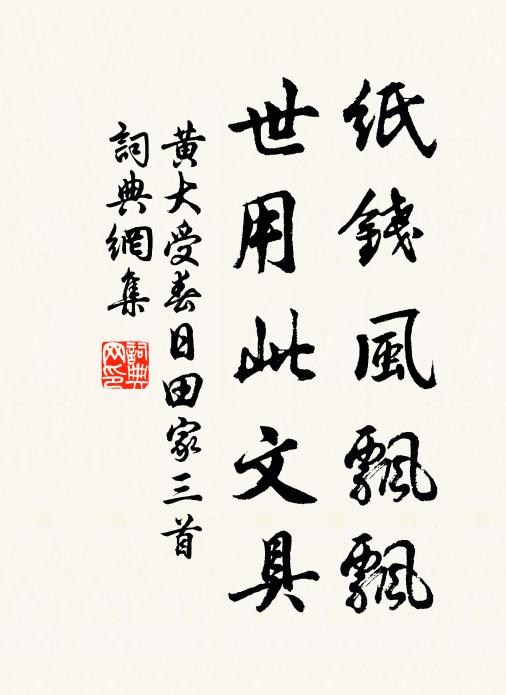 紙錢風飄飄
世用此文具
黃大受春日田家三首
詞典網集
詞典網印